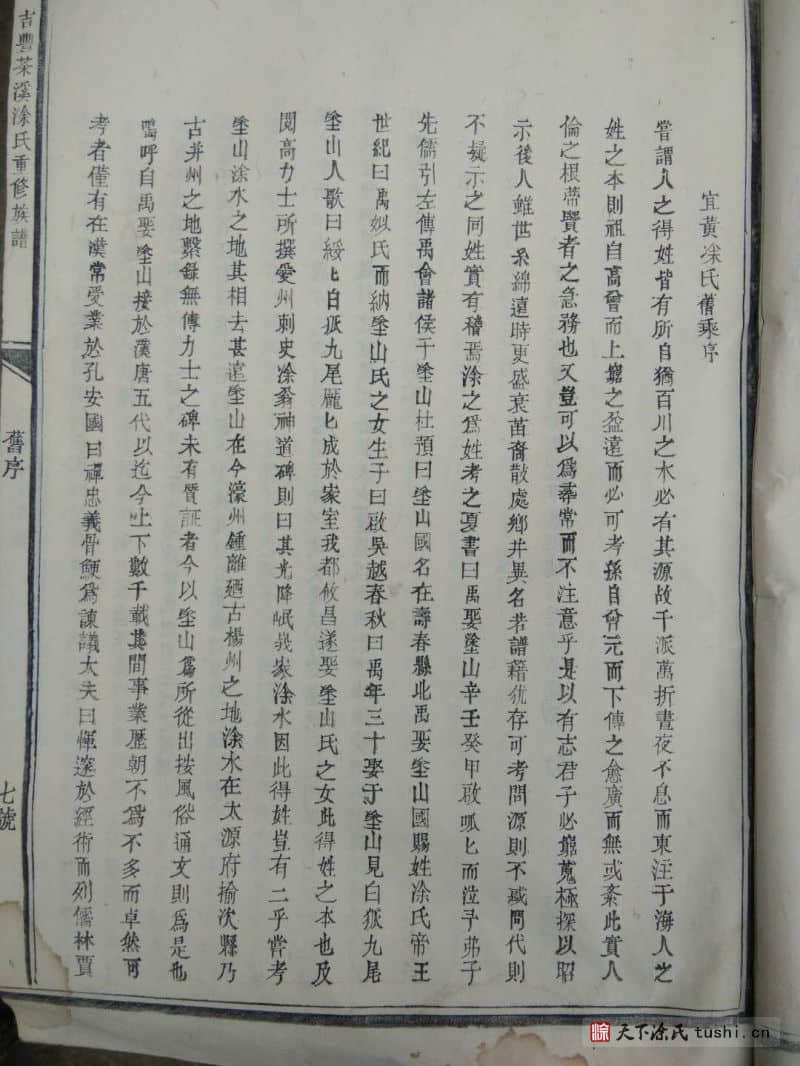 宜黃凃氏舊乘序
嘗謂人之得姓皆有所自猶百川之水必有其源故千派萬折晝夜不息而東注于海人之
姓之本則祖自高曾而上窮之益遠而必可考孫自曾元而下傳之愈廣而無或紊此實人
倫之根蒂賢者之急務也又豈可以爲彞常而不注意乎是以有志君子必窮蒐極探以昭
示後人雖世系綿遠時更盛衰苗裔散處鄉井異名若譜籍犹存可考問源則不惑問代則
不擬示之同姓實有稽焉涂之爲姓考之夏書曰禹娶塗山辛壬癸甲啟呱匕而泣予弗子
先儒引左傳禹會諸侯于塗山杜預曰塗山國名在壽春縣北禹娶塗山國賜姓凃氏帝王
世紀曰禹姒氏而納塗山氏之女生子曰啟吳越春秋曰禹年三十娶于塗山見白狐九尾
塗山人歌曰綏匕白狐九尾龐匕成於家室我都攸昌遂娶塗山氏之女此得姓之本也及
閱高力士所撰愛州刺史凃翁神道碑則曰其先降岷峩家涂水因此得姓豈有二乎嘗考
塗山涂水之地其相去甚遠塗山在今濠州鍾離廼古楊州之地涂水在太源府揄次縣乃
古并州之地繫錄無傳力士之碑未有質証者今以塗山爲所從出按風俗通文則爲是也
嗚呼自禹娶塗山接於漢唐五代以迄今上下數千載其間事業歷朝不爲不多而卓然可
考者僅有在漢常愛業於孔安國曰禪忠義骨鯁爲諫議太夫曰惲邃於經術而列儒林賈
吉豐茶溪涂氏重修族譜
舊序
七號
涂
天下涂氏 tushi.cn